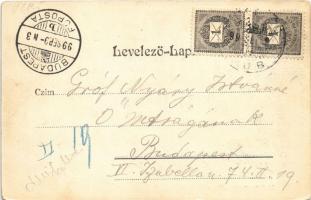 BUDAPEST
99 SEP 3 - N 3
FŐPOSTA
Levelező-Lap.
Czim Gróf Nyáry Istvánné
Ő Méltóságának
Budapest
VI. Izabella u. 74. II. 19
II 19